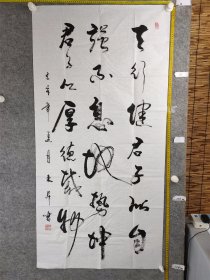 天行健君子以自
强不息地势坤
君子以厚德载物